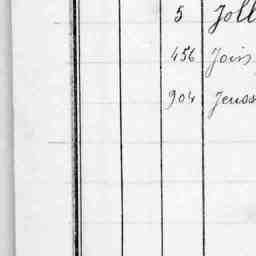 5 Joll
456 Join
904 Jeuss